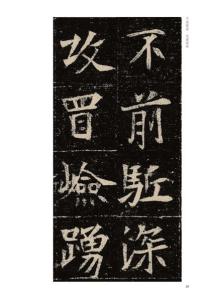 不前駈深
攻冒嶮踴